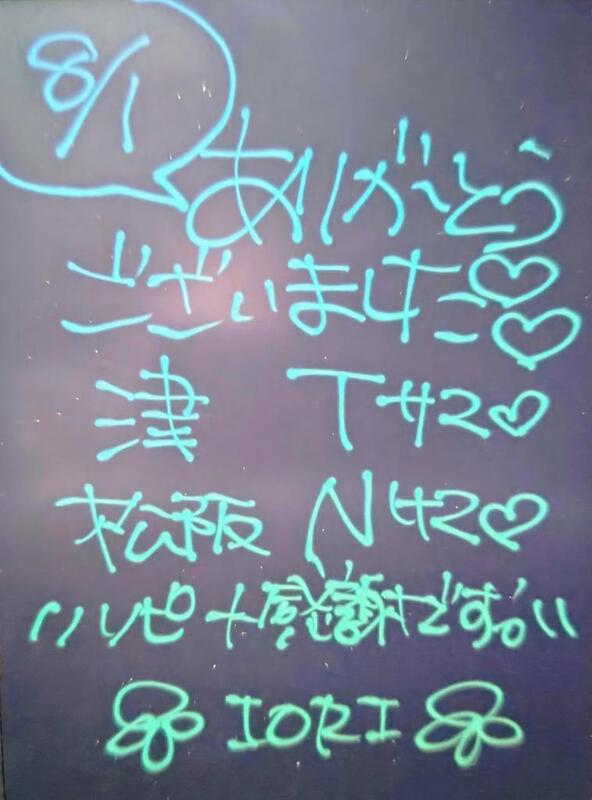 8/1
ありがとう
ございました♡♡
津 Tサマ♡
松阪 Nサマ♡
リピ 感謝です
IORI